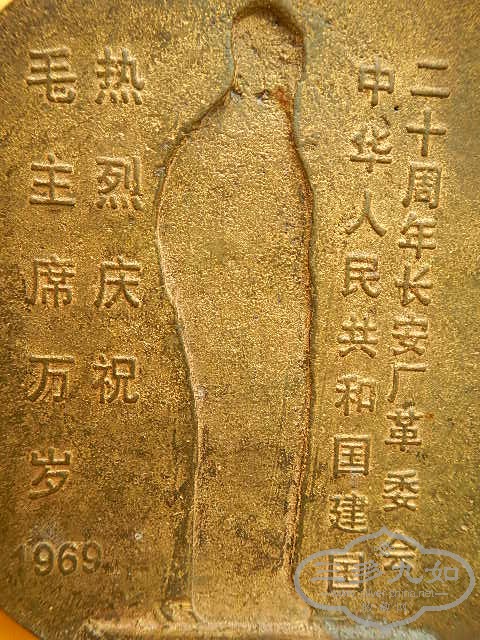 毛主席万岁
1969
热烈庆祝
中华人民共和国建国
二十周年长安厂革委会
三多九如